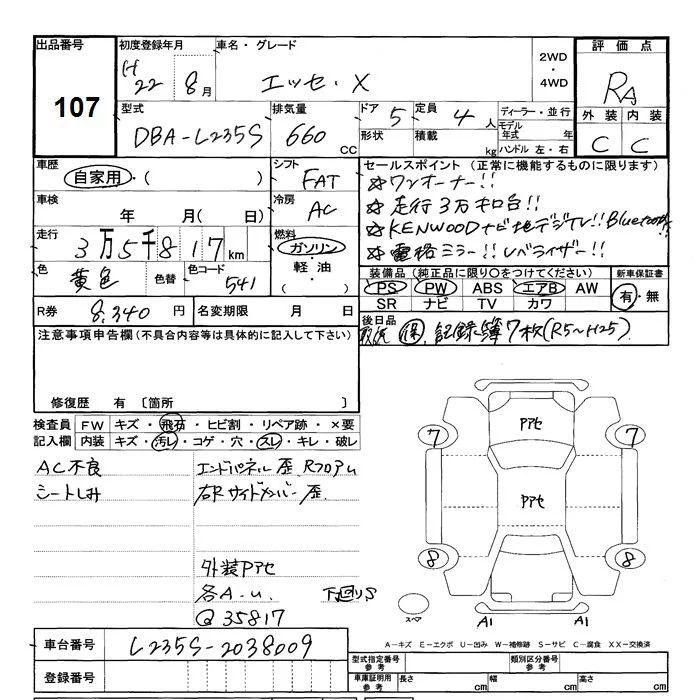 出品番号
107
初度登録年月
H22年 8月
車名・グレード
エッセ・X
2WD
・
4WD
評価点
RA
外装 内装
C C
型式
DBA-L235S
排気量
660 CC
ドア 5
定員 4人
形状
積載 kg
ディーラー・並行
モデル年式 年
ハンドル 左・右
車歴
自家用・( )
シフト
FAT
セールスポイント (正常に機能するものに限ります)
☆ワンオーナー!!
☆走行3万キロ台!!
☆KENWOODナビ地デジTV!! Bluetooth
☆電格ミラー!! レベライザー!!
車検
年 月( 日)
冷房
AC
走行
3万5千817km
燃料
ガソリン
軽油・
( )
色
黄色
色替
色コード
541
装備品 (純正品に限り○をつけてください)
PS PW ABS エアB AW
SR ナビ TV カワ
新車保証書
有・無
R券 8,340円
名変期限 月 日
後日品
取説 保 記録簿7枚(R5~H25)
注意事項申告欄(不具合内容等は具体的に記入して下さい)
修復歴 有 〔箇所 〕
検査員 FW キズ・飛石・ヒビ割・リペア跡・×要
記入欄 内装 キズ・汚レ・コゲ・穴・スレ・キレ・破レ
AC不良
シートしみ
エンドパネル歪 RフロアU
右Rサイドメンバー歪
外装Pアセ
各A-U. 下回りS
Q 35817
Pアセ
7 7
Pアセ
8 8
スペア
A1 A1
車台番号
L235S-2038009
登録番号
A-キズ E-エクボ U-凹み W-補修跡 S-サビ C-腐食 XX-交換済
型式指定番号 参考
類別区分番号 参考
車庫証明用 参考
長さ cm 幅 cm 高さ cm